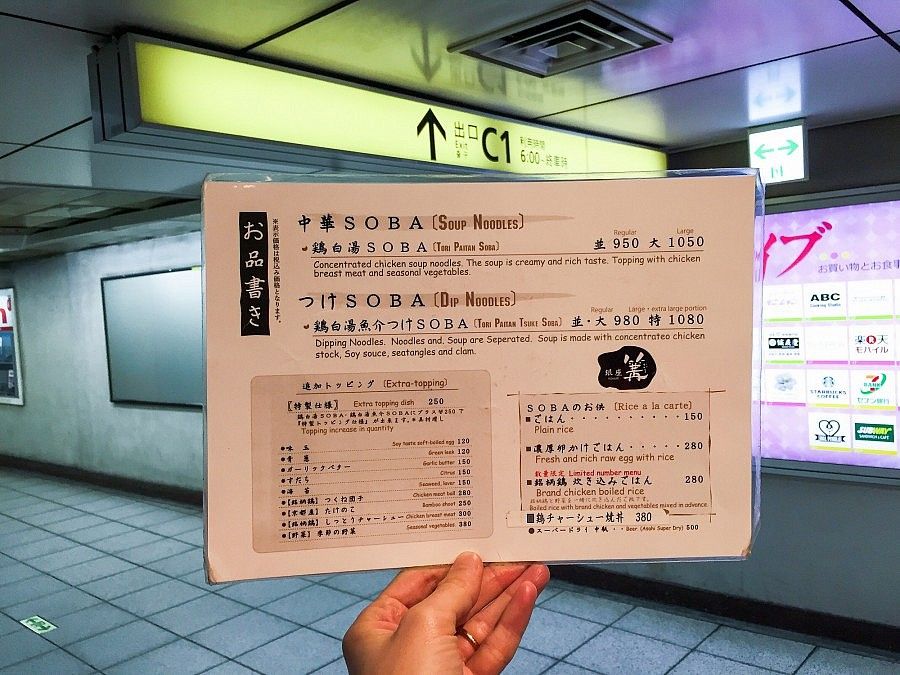 出口
Exit
C1
利用時間
6:00~終車時
お品書き
※表示価格は税込み価格となります。
中華SOBA〔SOUP NOODLES〕
鶏白湯SOBA〔TORI PAITAN SOBA〕
Regular Large
並 950 大 1050
Concentrated chicken soup noodles. The soup is creamy and rich taste. Topping with chicken
breast meat and seasonal vegetables.
つけSOBA〔DIP NOODLES〕
鶏白湯魚介つけSOBA〔TORI PAITAN TSUKE SOBA〕
Regular Large・extra large portion
並・大 980 特 1080
Dipping Noodles. Noodles and. Soup are Seperated. Soup is made with concentrateo chicken
stock, Soy souce, seatangles and clam.
銀座
篝
追加トッピング (Extra-topping)
【特製仕様】 Extra topping dish 250
鶏白湯SOBA・鶏白湯魚介SOBAにプラス¥250で
Topping increase in quantity
味玉 Soy taste soft-boiled egg 120
青葱 Green leek 120
ガーリックバター Garlic butter 150
すだち Citrus 150
海苔 Seaweed, laver 150
【銘柄鶏】つくね団子 Chicken meat ball 280
【京都産】たけのこ Bamboo shoot 250
【銘柄鶏】しっとりチャーシュー Chicken breast meat 300
【野菜】季節の野菜 Seasonal vegetables 380
SOBAのお供 〔Rice a la carte〕
ごはん・・・・・・・・・150
Plain rice
濃厚卵かけごはん・・・・・280
Fresh and rich raw egg with rice
数量限定 Limited number menu
銘柄鶏 炊き込みごはん 280
Brand chicken boiled rice
Boiled rice with brand chicken and vegetables mixed in advance
鶏チャーシュー焼丼 380
スーパードライ 中瓶・・Beer (Asahi Super Dry) 500
イブ
お買い物とお食事
ABC
Cooking Studio
楽天
モバイル
STARBUCKS
COFFEE
7
ELEVEN
セブン銀行
SUBWAY
SANDWICH & CAFE